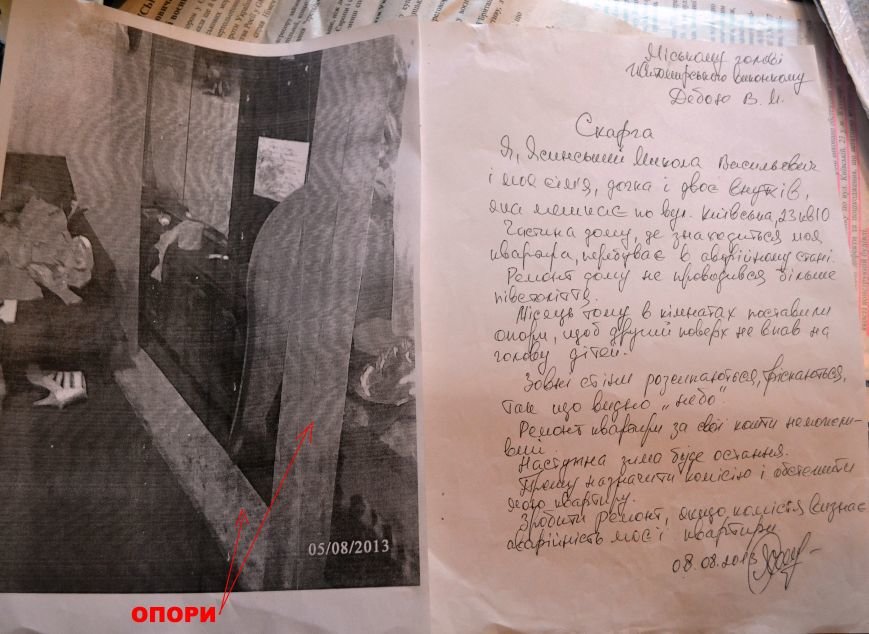 05/08/2013
ОПОРИ
Міському голові
Житомирського виконкому
Дебою В. М.
Скарга
Я, Ясинський Микола Васильевич
і моя сім'я, дочка і двоє внуків,
яка мешкає по вул. Київська, 23 кв 10
Частина дому, де знаходиться моя
квартира, перебуває в аварійному стані.
Ремонт дому не проводився більше
півстоліття.
Місяць тому в кімнатах поставили
опори, щоб другий поверх не впав на
голову дітей.
Зовні стіни розсипаються, тріскаються,
так що видно „небо".
Ремонт квартири за свої кошти неможли-
вий
Наступна зима буде остання.
Прошу назначити комісію і обстежити
мою квартиру.
Зробити ремонт, якщо комісія визнає
аварійність моєї квартири
08.08.2013